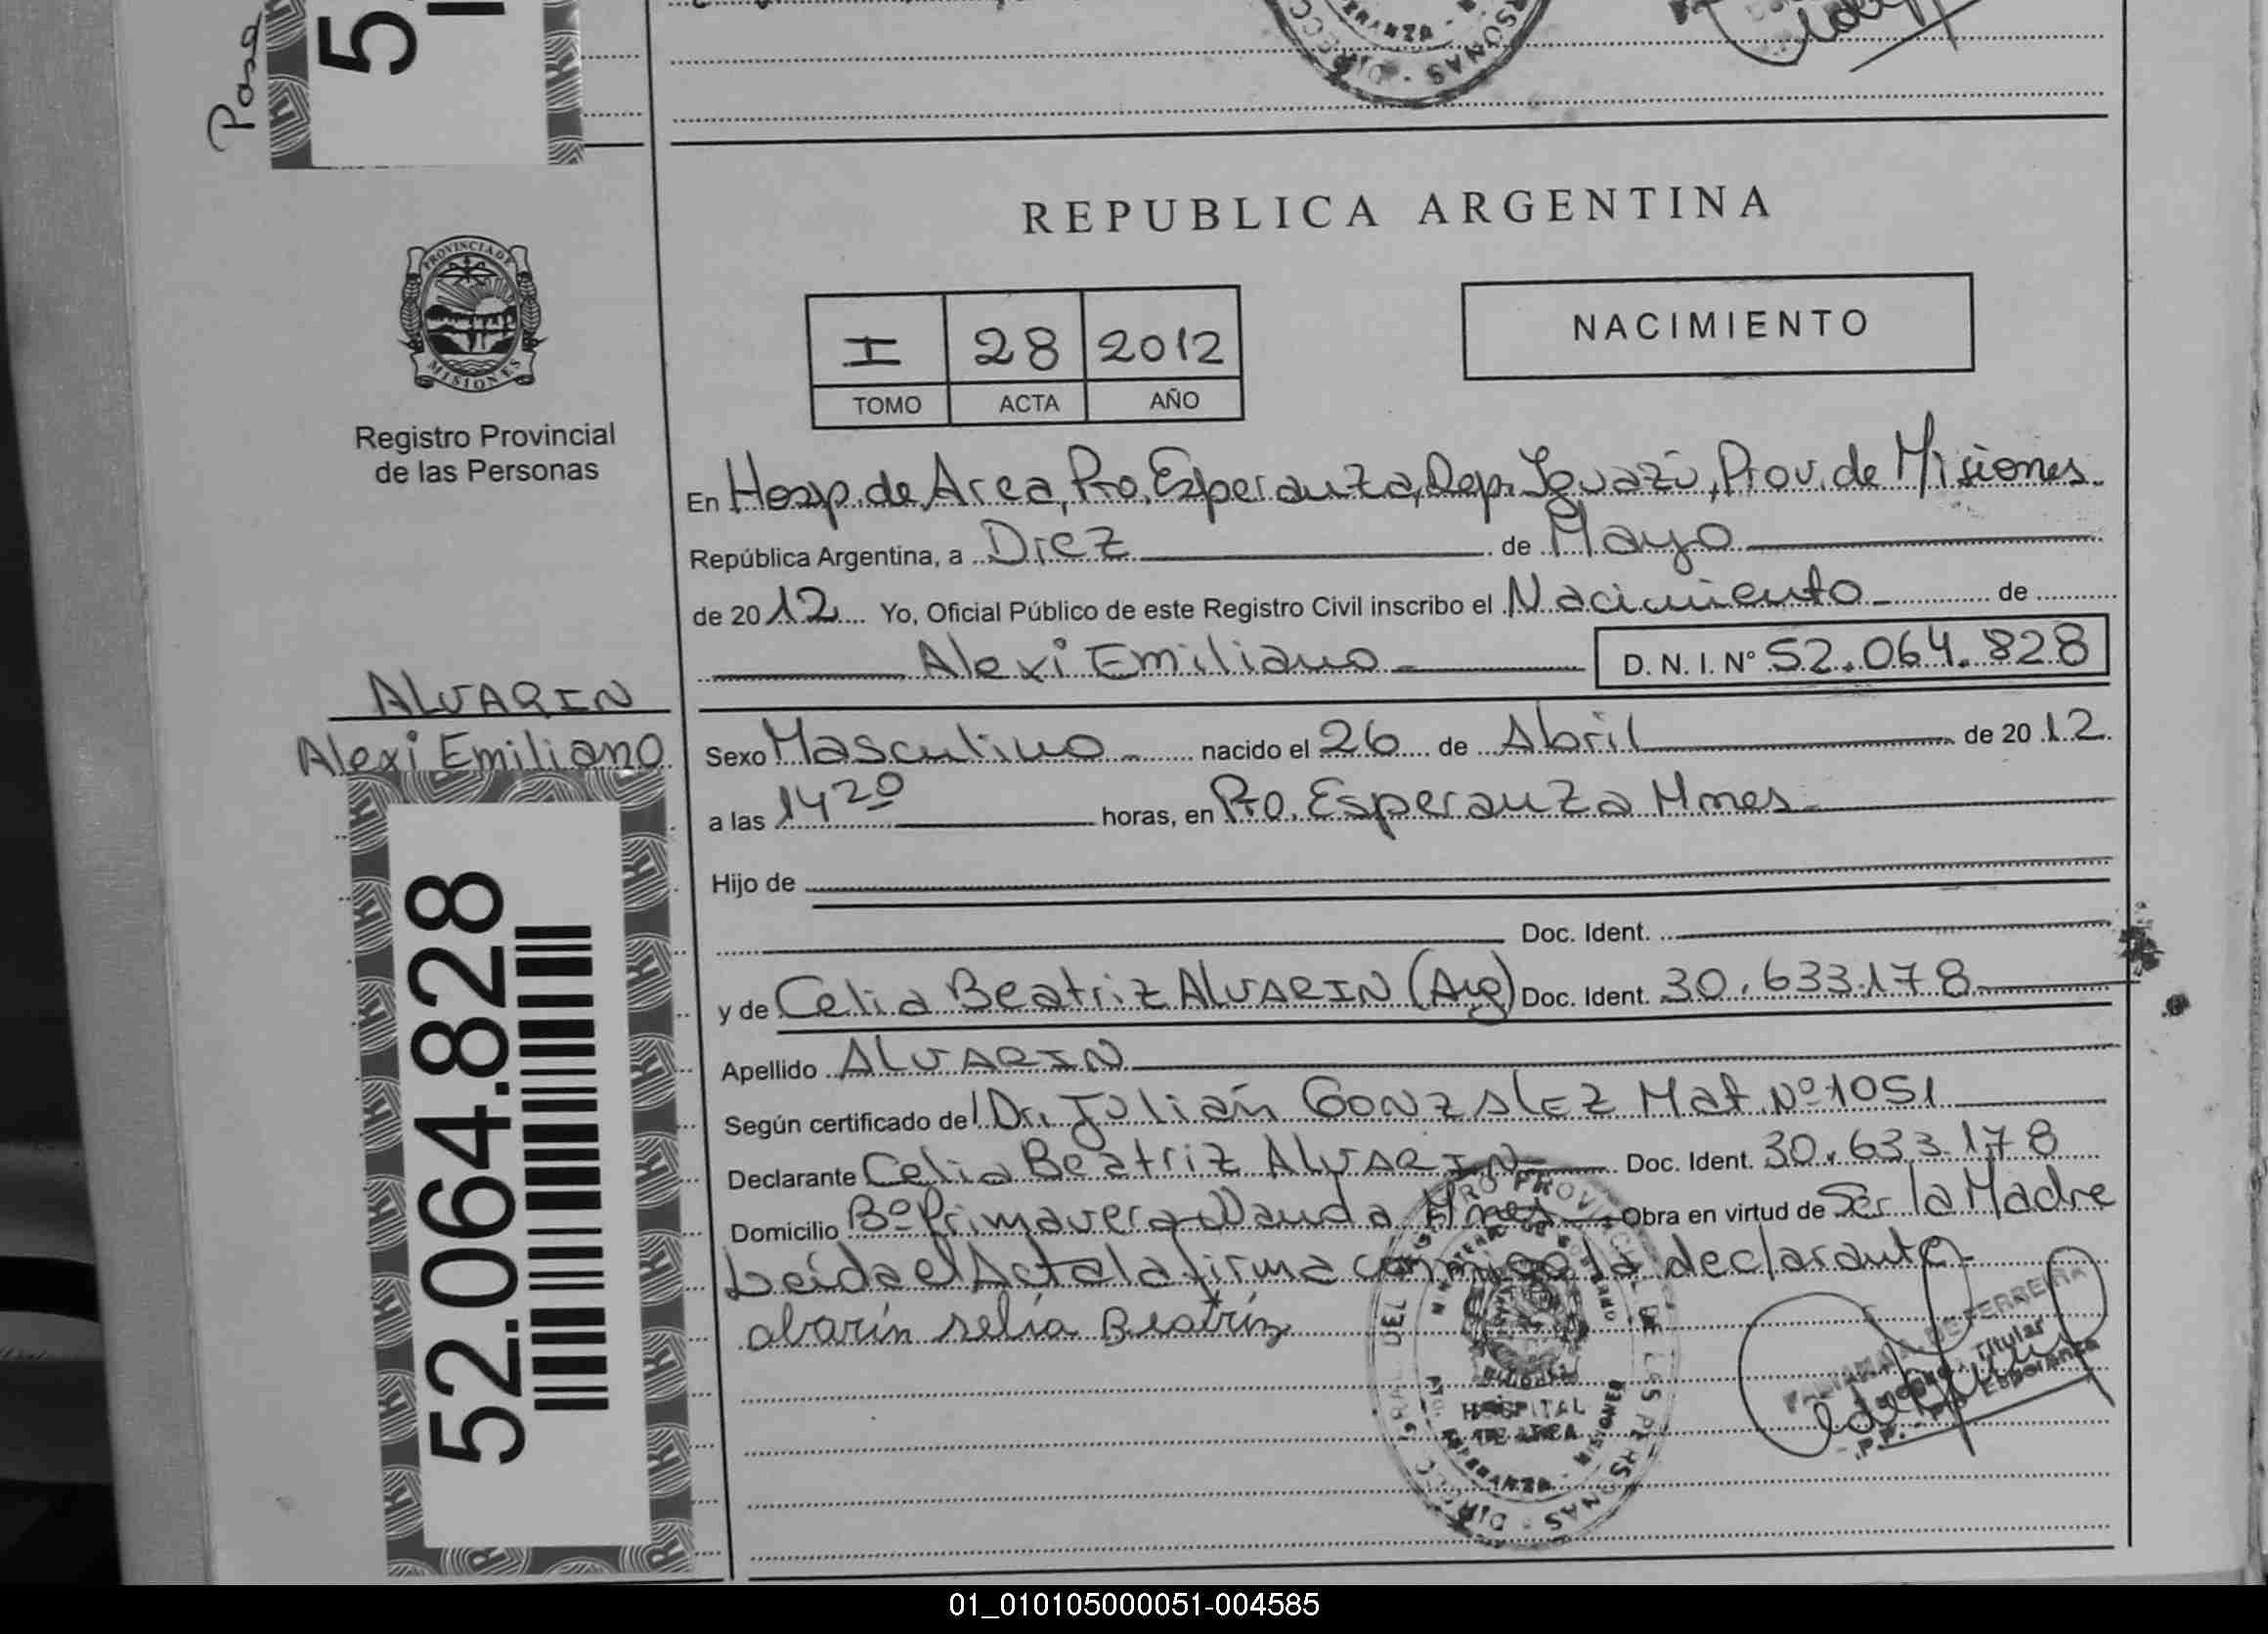 Pasa
5
DIRECC
ERANZA
SONAS
REPUBLICA ARGENTINA
PROVINCIA DE
MISIONES
Registro Provincial
de las Personas
I 28 2012
TOMO ACTA AÑO
NACIMIENTO
En Hosp. de Area, Pto. Esperanza, Dep. Iguazú, Prov. de Misiones.
República Argentina, a Diez de Mayo
de 2012 Yo, Oficial Público de este Registro Civil inscribo el Nacimiento de
Alexi Emiliano D.N.I. Nº 52.064.828
ALVARIN
Alexi Emiliano
52.064.828
Sexo Masculino nacido el 26 de Abril de 2012.
a las 14 20 horas, en Pto. Esperanza Mnes
Hijo de
Doc. Ident.
y de Celia Beatriz ALVARIN (Arg) Doc. Ident. 30.633.178
Apellido ALVARIN
Según certificado de Dr. Julián GONZALEZ Mat. Nº 1051
Declarante Celia Beatriz ALVARIN Doc. Ident. 30.633.178
Domicilio Bº Primavera Wanda Mnes Obra en virtud de Ser la Madre
Leída el Acta la firma conmigo la declarante
alvarin selia Beatriz
DEL REGISTRO PROVINCIAL DE LAS PERSONAS
HOSPITAL
DE AREA
ESPERANZA - MISIONES
DE FERREIRA
Titular
Esperanza
01_010105000051-004585